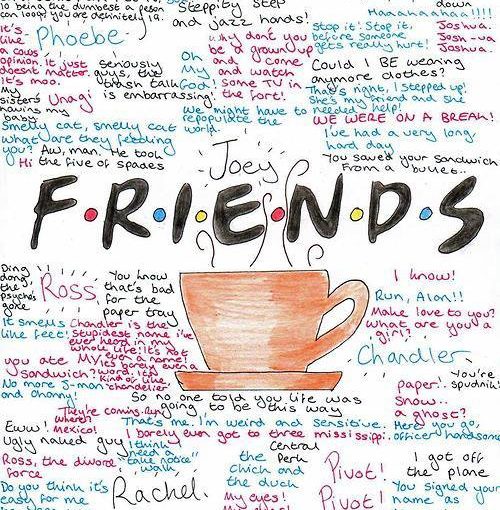 10 being the dumbest a person
can look? you are definitely 19.
Steppity Step
and jazz hands!
down
Haaaahahahaa!!!!
It's
like
Phoebe
a cows
opinion. it just
doesnt matter.
It's moo.
My
sisters
having my
baby.
Unagi
seriously
guys, the
trash talk
is embarrassing!
Oh
My
God!
Why don't you
be a grownup
and come
and watch
some TV in
the fort!
Stop it! Stop it,
before someone
gets really hurt!
Joshua.
Josh-ua
Joshua.
Could I BE wearing
anymore clothes?
That's right, I stepped up!
She's my friend and she
needed help!
We might have to
repopulate the
world.
WE WERE ON A BREAK!
Smelly cat, smelly cat
what are they feeding
you?
Aw, man, He took
Hi the five of spades
I've had a very long,
hard day
You saved your sandwich
From a bullet..
Joey
F·R·I·E·N·D·S
Ding
dong,
the
psycho's
gone
Ross
You know
that's bad
for the
paper tray
I know!
Run, Alan!!
Make love to you?
what are you a
girl?
It smells
like feet!
Chandler is the
Stupidest name i've
ever heard in my
whole life! It's not
even a name!
its barely even a
word. its
kind of like
chandelier
you ate MY
sandwich?
No more J-man
and Channy!
Chandler
You're
spudnik!
paper..
Snow..
a ghost?
So no one told you life was
going to be this way
They're coming. Run
Where?
Mexico!
Eww!
ugly naked guy
That's me. I'm weird and sensitive.
I barely even got to three missisippi.
Here you go,
officer handsome
Ross, the divorce
force
I think I
need a
"take notice"
walk
Central
Perk
the
chick and
the duck
Pivot!
Pivot!
I got off
the plane
Do you think it's
easy for me
Rachel
My eyes!
My eyes!
You signed your
name as